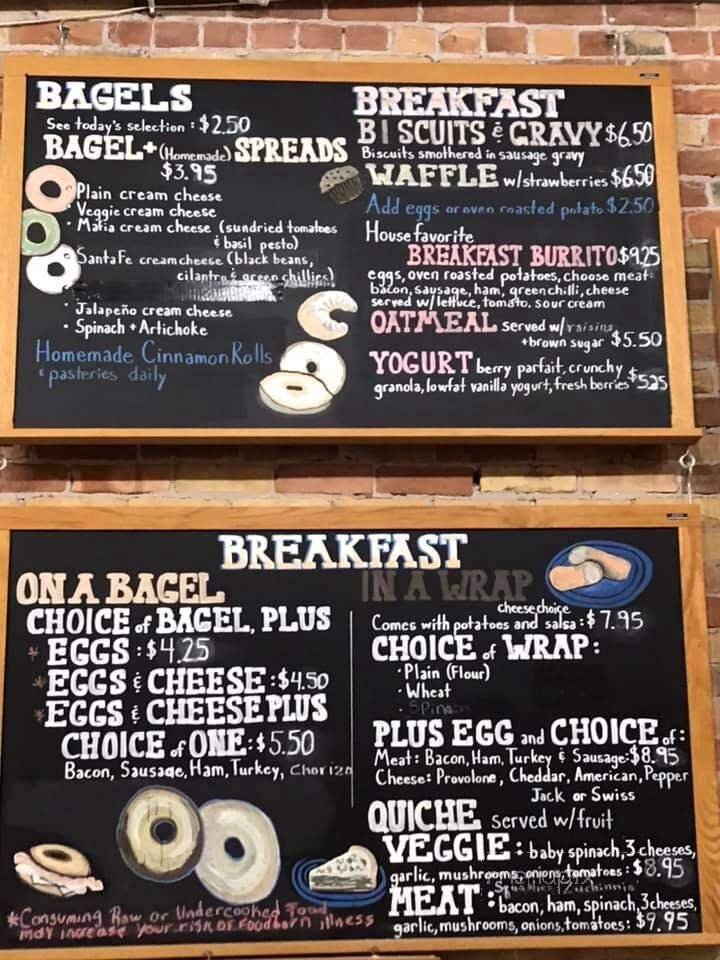 BAGELS
See today's selection : $2.50
BAGEL + (Homemade) SPREADS
$3.95
• Plain cream cheese
• Veggie cream cheese
• Mafia cream cheese (sundried tomatoes
& basil pesto)
• Santa Fe cream cheese (black beans,
cilantro & green chillies)
• Jalapeño cream cheese
• Spinach + Artichoke
Homemade Cinnamon Rolls
& pasteries daily
BREAKFAST
BISCUITS & GRAVY $6.50
Biscuits smothered in sausage gravy
WAFFLE w/strawberries $6.50
Add eggs or oven roasted potato $2.50
House favorite
BREAKFAST BURRITO $9.25
eggs, oven roasted potatoes, choose meat:
bacon, sausage, ham, green chilli, cheese
served w/ lettuce, tomato, sour cream
OATMEAL served w/raisins
+brown sugar $5.50
YOGURT berry parfait, crunchy
granola, lowfat vanilla yogurt, fresh berries $5.25
BREAKFAST
ON A BAGEL
CHOICE of BAGEL, PLUS
* EGGS : $4.25
* EGGS & CHEESE : $4.50
* EGGS & CHEESE PLUS
CHOICE of ONE : $5.50
Bacon, Sausage, Ham, Turkey, Chorizo
*Consuming Raw or Undercooked Food
may increase your risk of foodborn illness
IN A WRAP
cheese choice
Comes with potatoes and salsa : $7.95
CHOICE of WRAP :
• Plain (Flour)
• Wheat
• Spinach
PLUS EGG and CHOICE of :
Meat : Bacon, Ham, Turkey & Sausage : $8.95
Cheese : Provolone, Cheddar, American, Pepper
Jack or Swiss
QUICHE served w/fruit
VEGGIE : baby spinach, 3 cheeses,
garlic, mushrooms, onions, tomatoes : $8.95
MEAT : bacon, ham, spinach, 3 cheeses,
garlic, mushrooms, onions, tomatoes : $9.95